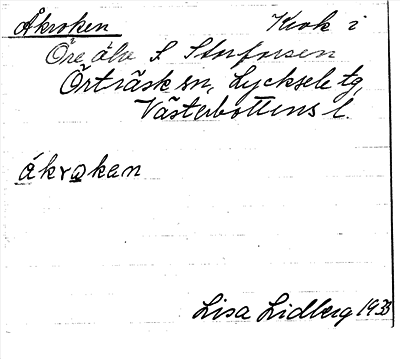 Åkroken Krok i
Öre älv S Storforsen
Örträsk sn, Lycksele tg,
Västerbottens l.
åkrokan
Lisa Lidberg 1933